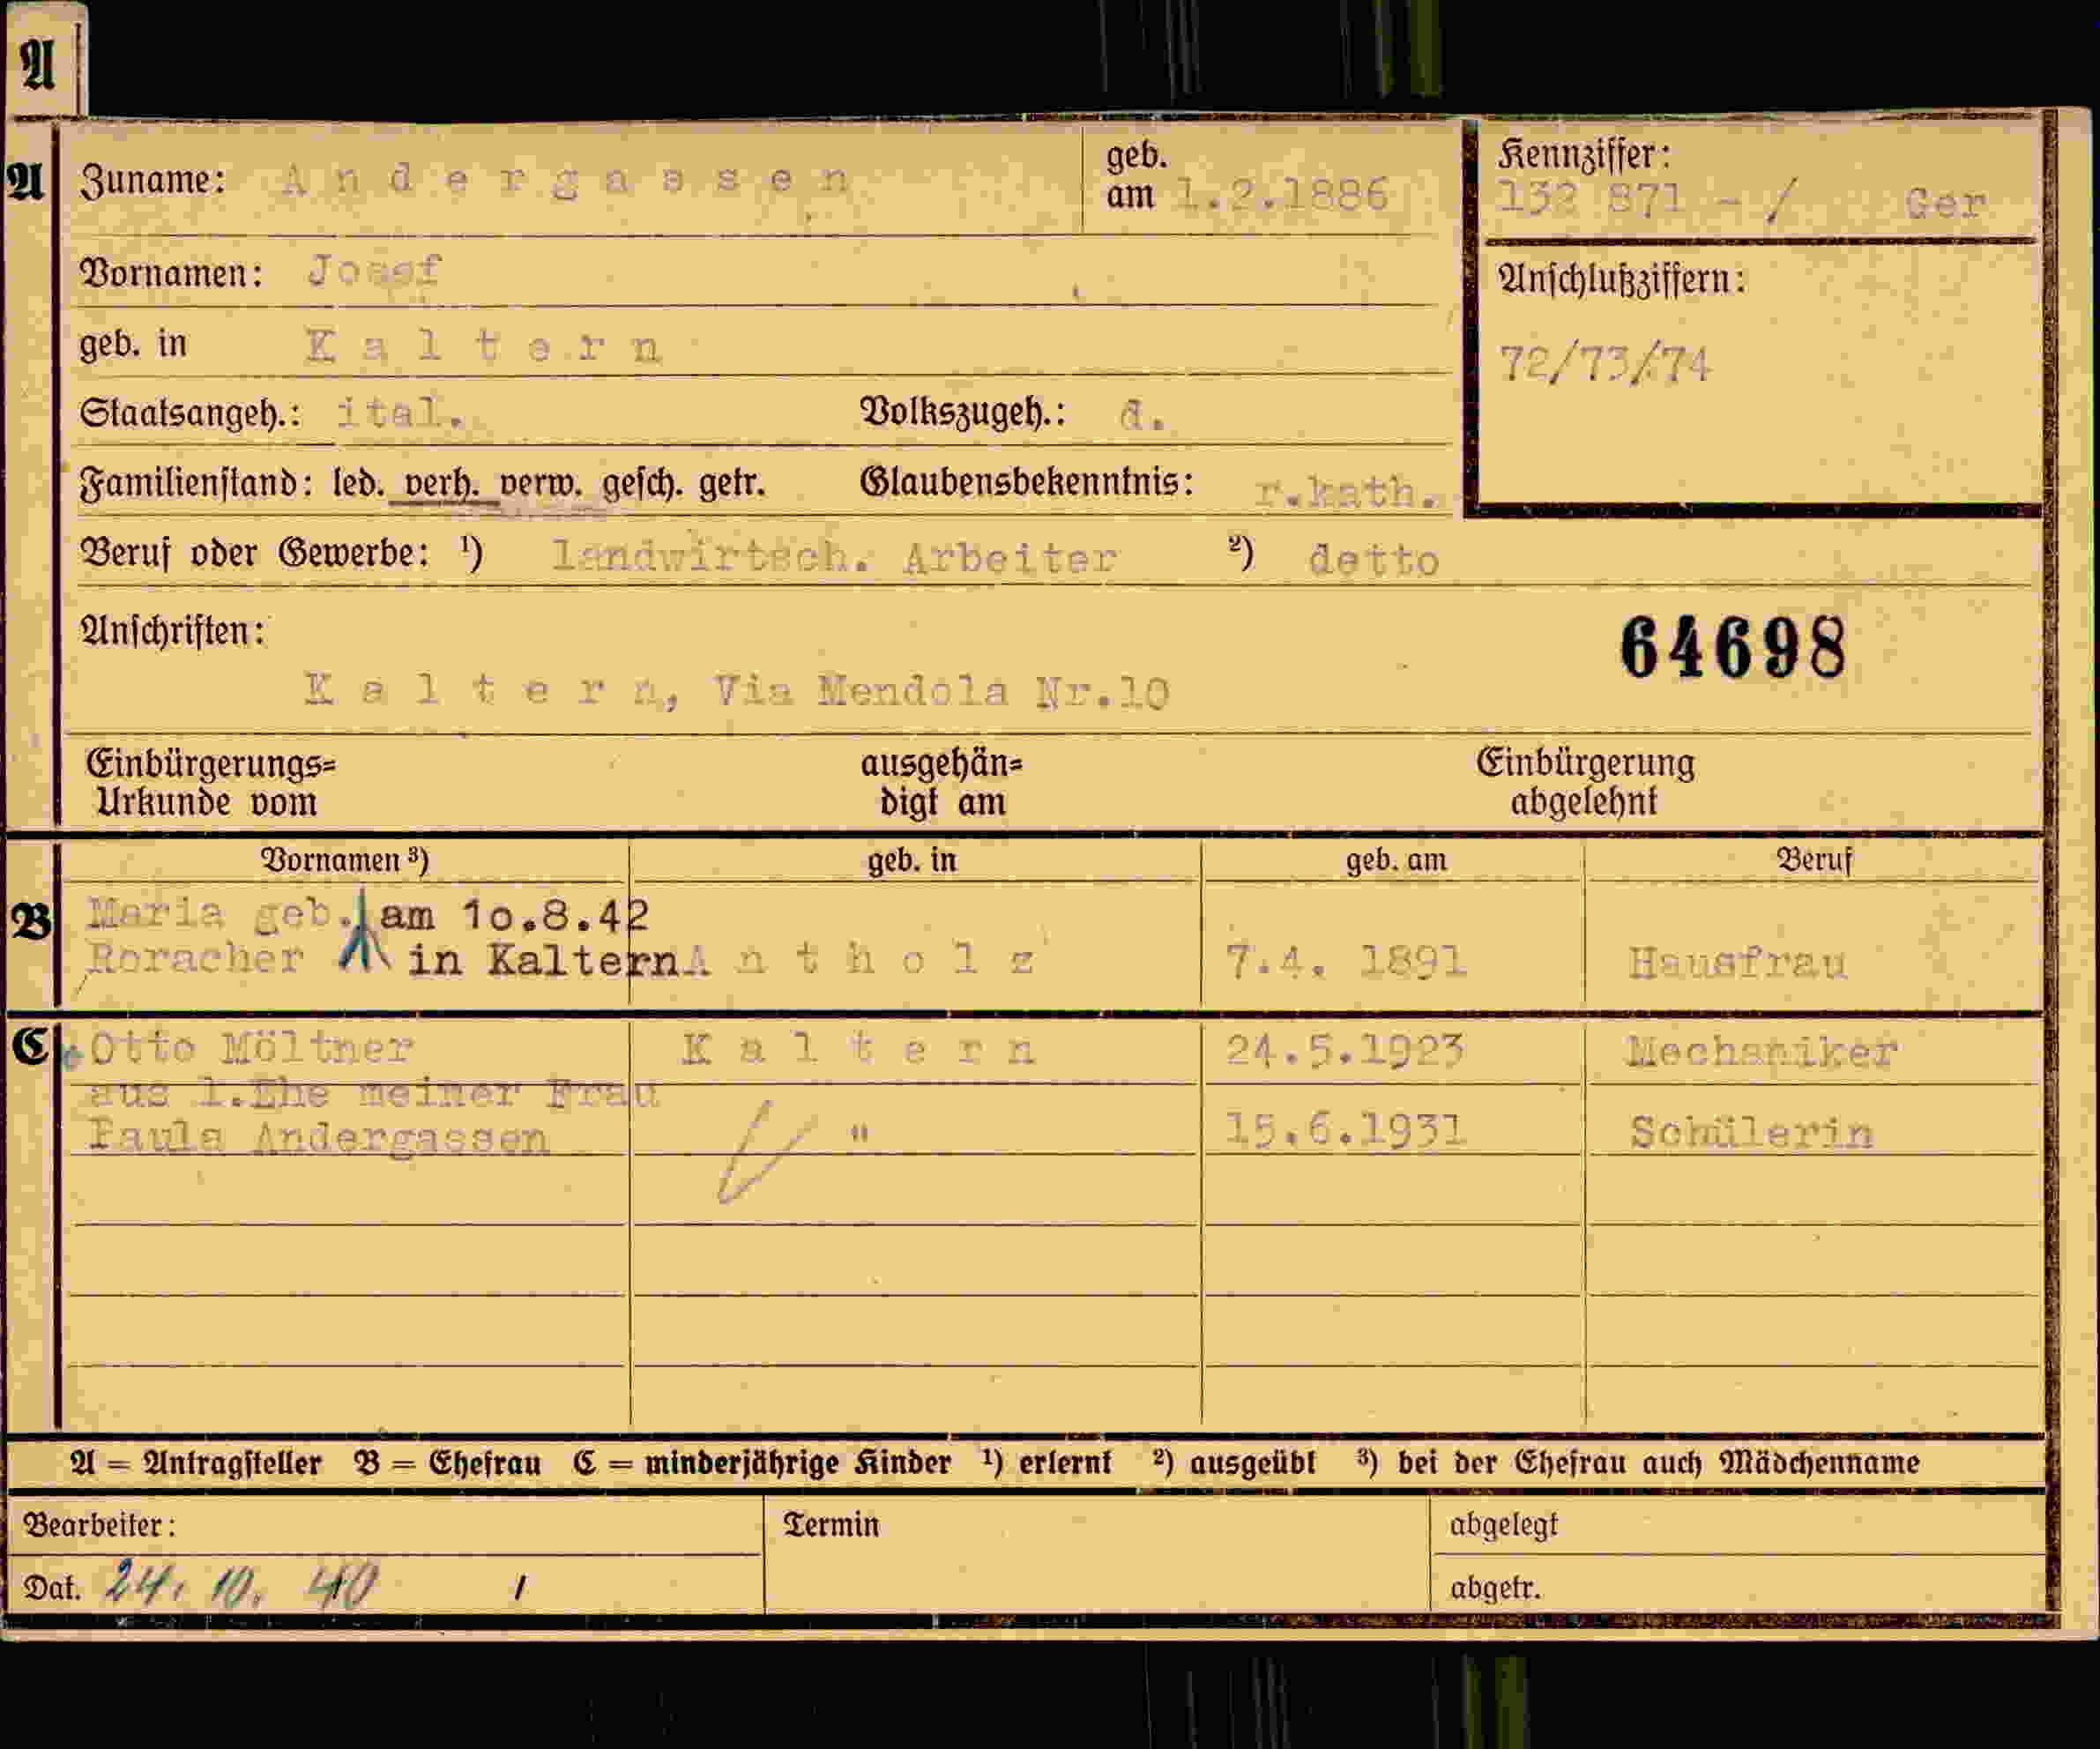 A
A Zuname: Andergassen geb. am 1.2.1886
Kennziffer:
132 871 - / Ger
Vornamen: Josef
Anschlußziffern:
72/73/74
geb. in Kaltern
Staatsangeh.: ital. Volkszugeh.: d.
Familienstand: led. verh. verw. gesch. getr. Glaubensbekenntnis: r.kath.
Beruf oder Gewerbe: ¹) landwirtsch. Arbeiter ²) detto
Anschriften:
64698
Kaltern, Via Mendola Nr.10
Einbürgerungs= ausgehän= Einbürgerung
Urkunde vom digt am abgelehnt
Vornamen ³) geb. in geb. am Beruf
B Maria geb. am 10.8.42
Roracher in Kaltern Antholz 7.4. 1891 Hausfrau
C Otto Möltner Kaltern 24.5.1923 Mechaniker
aus 1.Ehe meiner Frau
Paula Andergassen " 15.6.1931 Schülerin
A = Antragsteller B = Ehefrau C = minderjährige Kinder ¹) erlernt ²) ausgeübt ³) bei der Ehefrau auch Mädchenname
Bearbeiter: Termin abgelegt
Dat. 24. 10. 40 / abgetr.